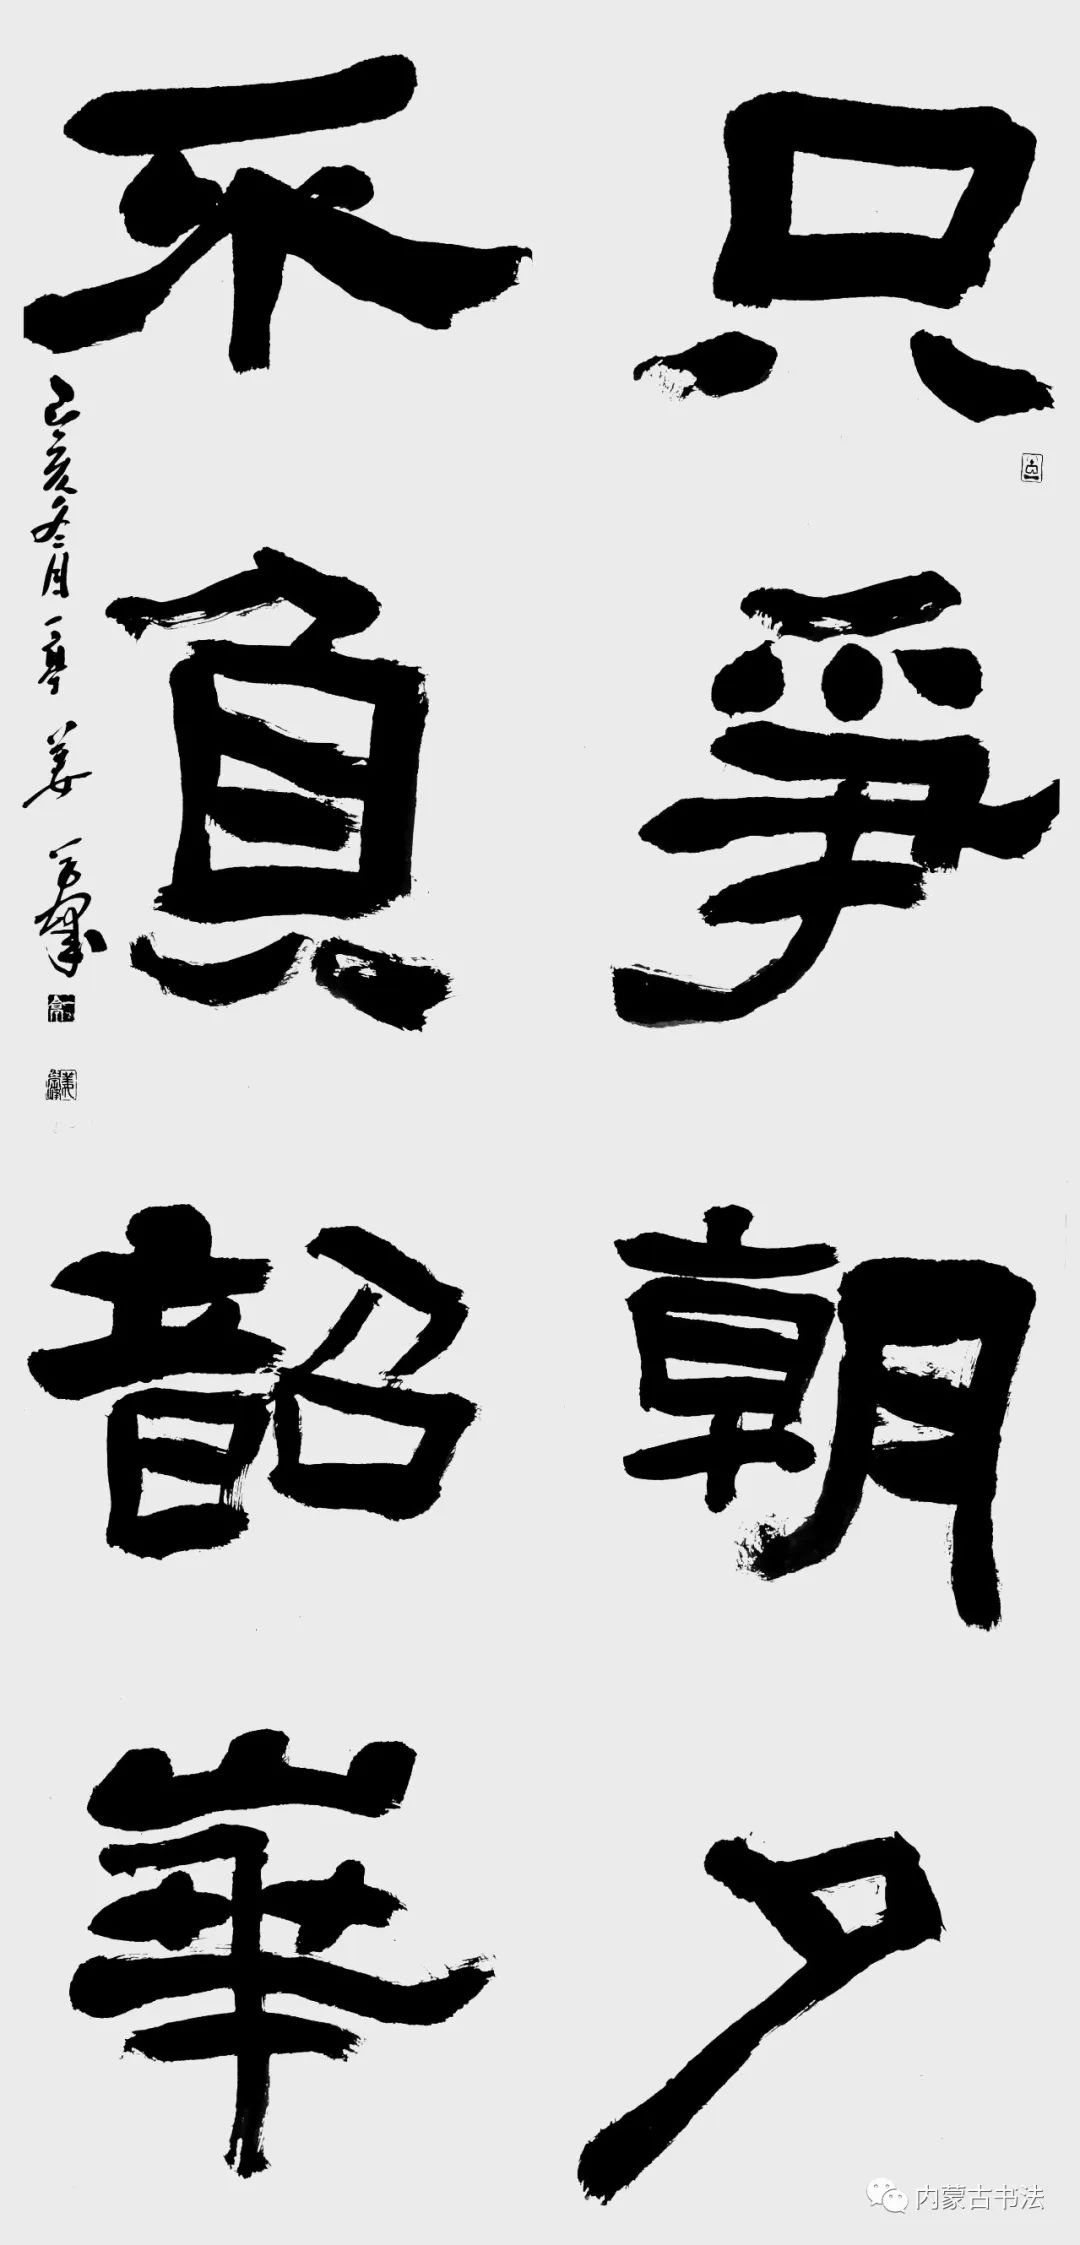 只爭朝夕
不負韶華
己亥冬月一亭姜
内蒙古书法